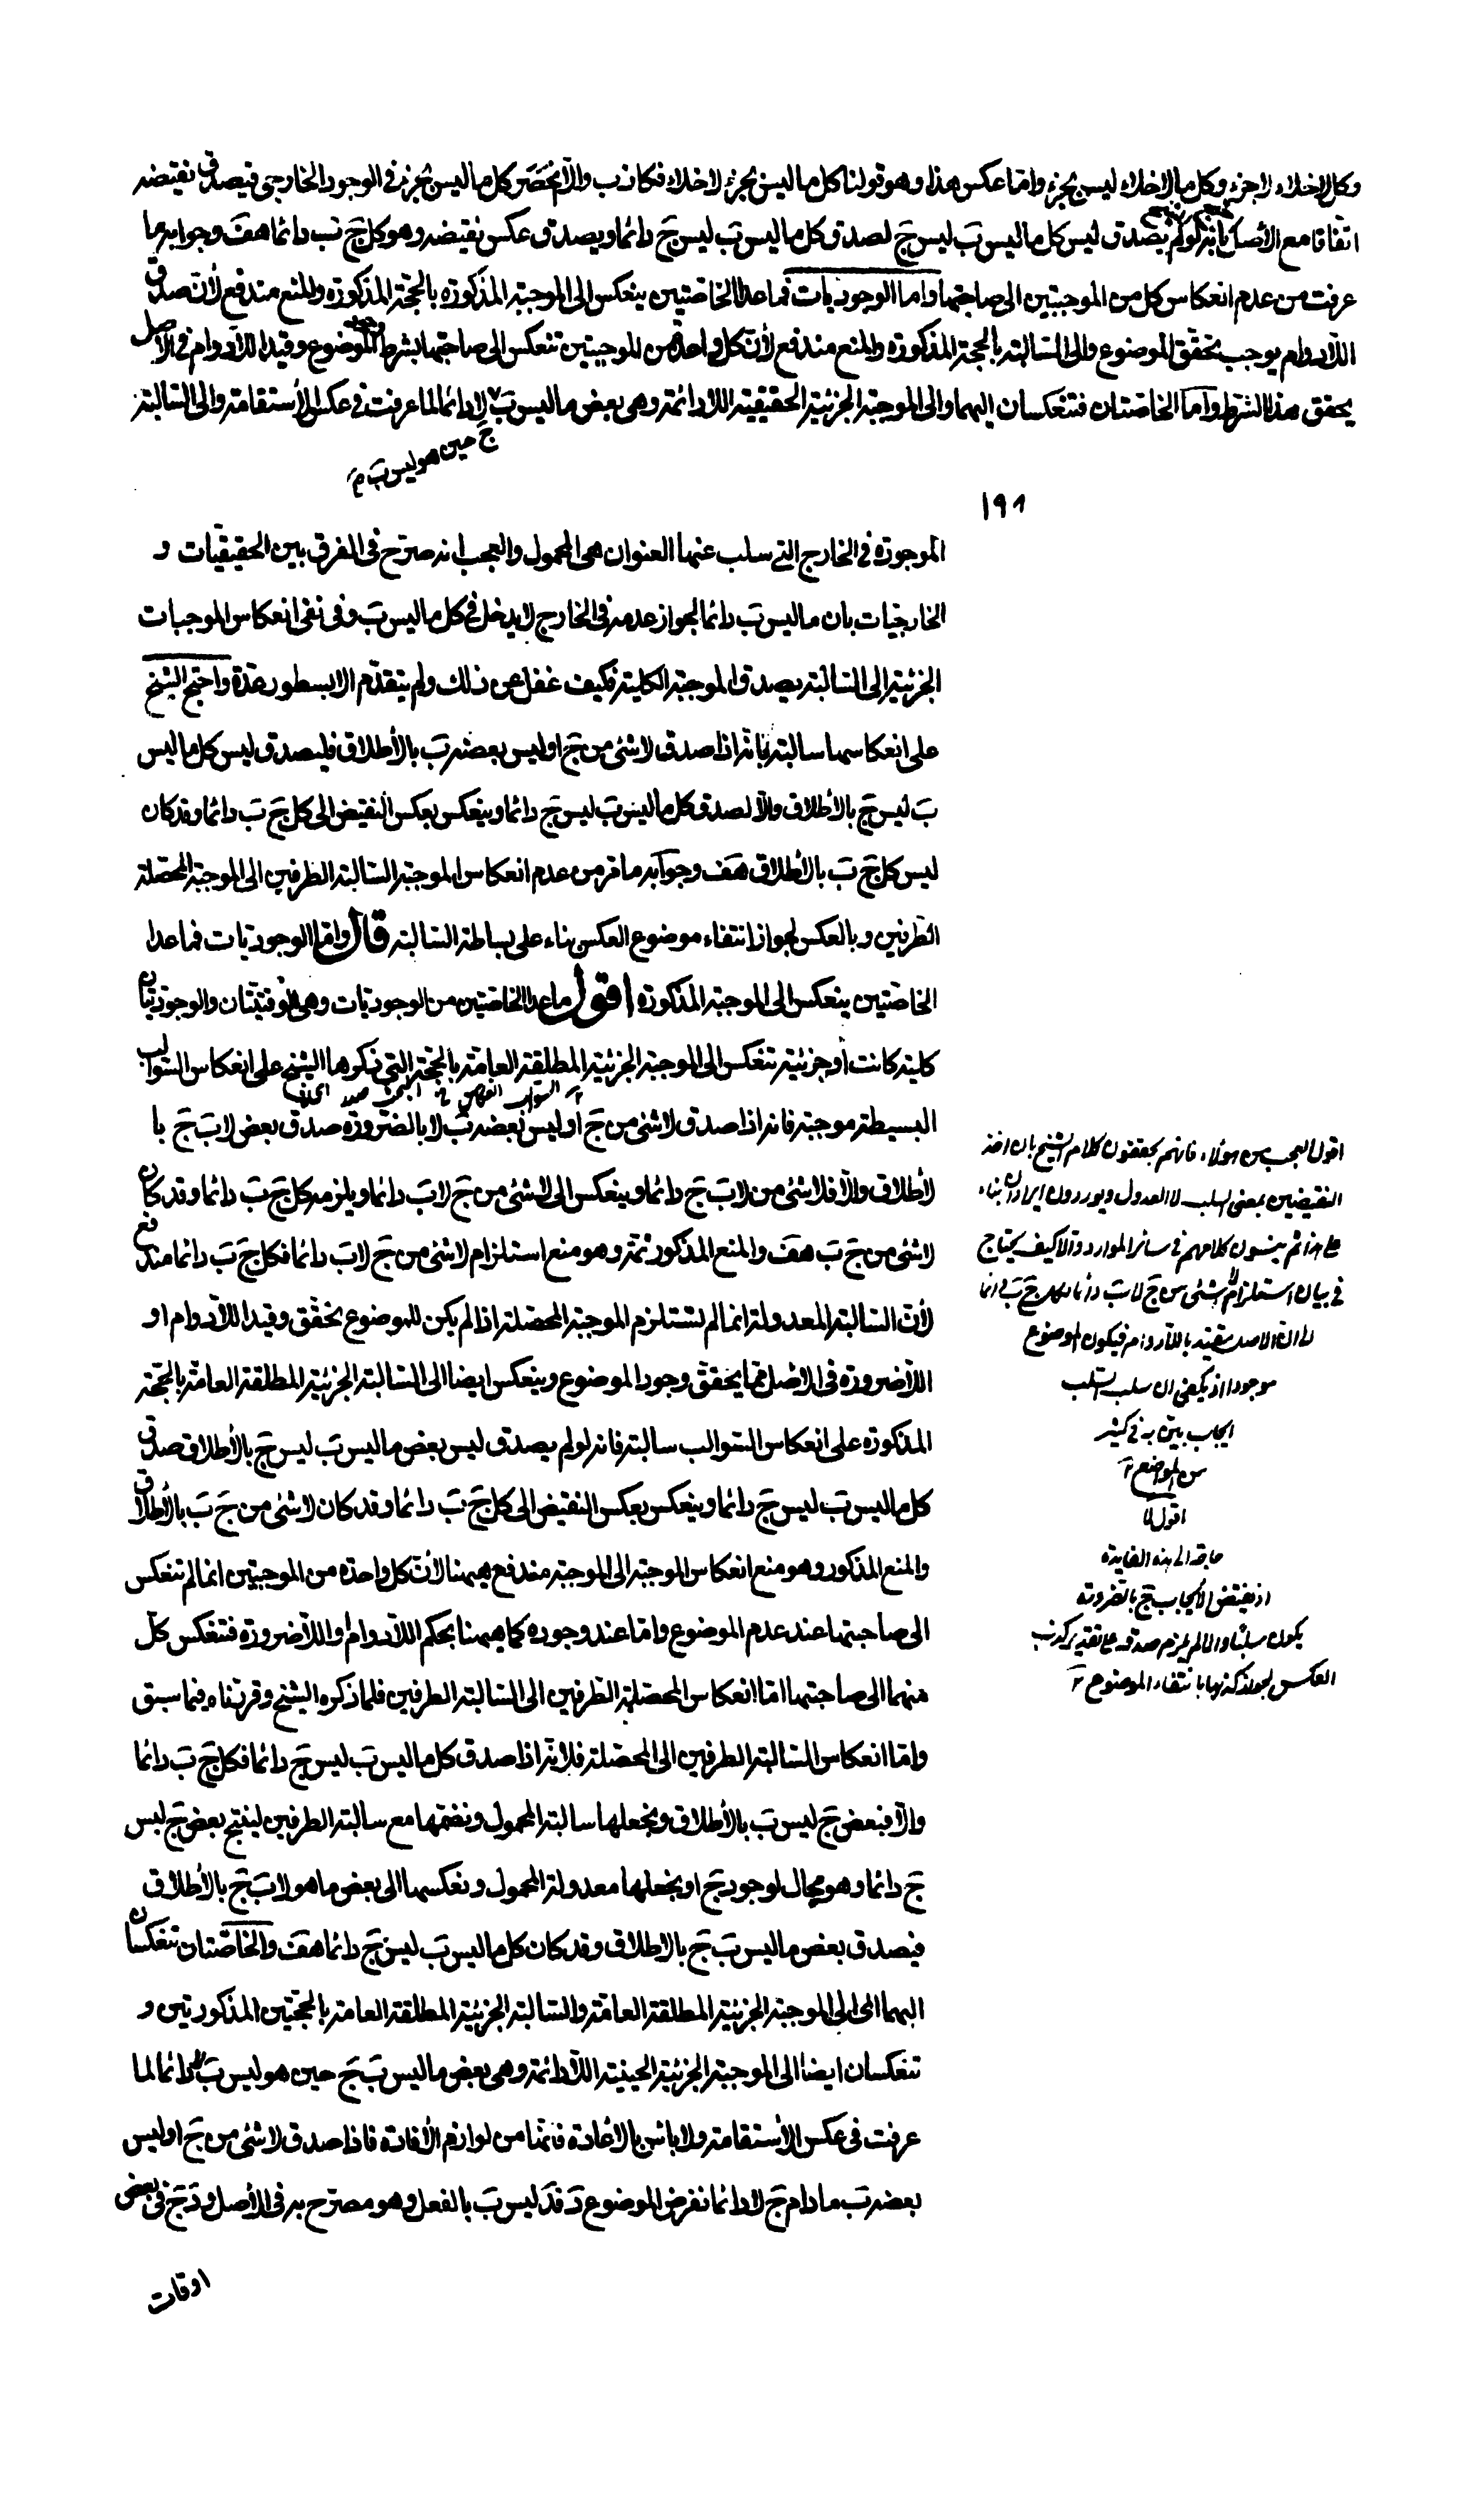 وكل لاخلاء لاجزء وكل ما لاخلاء ليس بجزء واما عكس هذا وهو قولنا كل ما ليس بجزء لاخلاء فكاذب والا انحصر كل ما ليس بجزء في الوجود الخارجي فيصدق نقيضه
اتفاقا مع الأصل بأنه لو لم يصدق ليس كل ما ليس بَ ليس جَ لصدق كل ما ليس بَ ليس جَ دائما ويصدق عكس نقيضه وهو كل جَ بَ دائما هف وجوابه ما
عرفت من عدم انعكاس كل من الموجبتين الى صاحبتها واما الوجوديات فما عدا الخاصتين ينعكس الى الموجبة المذكورة بالحجة المذكورة والمنع مندفع لأن صدق
اللادوام يوجب تحقق الموضوع والى السالبة بالحجة المذكورة والمنع مندفع لأن كل واحدة من الموجبتين تنعكس الى صاحبتها بشرط الموضوع وقيد اللادوام في الأصل
يحقق هذا الشرط واما الخاصتان فتنعكسان اليهما والى الموجبة الجزئية الحقيقية اللادائمة وهى بعض ما ليس بَ لا دائما لما عرفت في عكس الأستقامة والى السالبة
جَ حين هو ليس بَ م
١٩٨
الموجودة في الخارج التي سلب عنها العنوان هى المحمول والعجب انه صرح فى الفرق بين الحقيقيات و
الخارجيات بان ما ليس بَ دائما لجواز عدمه فى الخارج لا يدخل في كل ما ليس بَ وفى نفى انعكاس الموجبات
الجزئية الى السالبة بصدق الموجبة الكلية فكيف غفل عن ذلك ولم يتقدم الا بسطور عدة واحتج الشيخ
على انعكاسها سالبة بأنه اذا صدق لا شئ من جَ او ليس بعضه بَ بالأطلاق فليصدق ليس كل ما ليس
بَ ليس جَ بالأطلاق والا لصدق كل ما ليس بَ ليس جَ دائما وينعكس بعكس النقيض الى كل جَ بَ دائما وقد كان
ليس كل جَ بَ بالأطلاق هف وجوابه ما مر من عدم انعكاس الموجبة السالبة الطرفين الى الموجبة المحصلة
الطرفين وبالعكس لجواز انتفاء موضوع العكس بناء على بساطة السالبة قال واما الوجوديات فما عدا
الخاصتين ينعكس الى الموجبة المذكورة اقول ما عدا الخاصتين من الوجوديات وهى الوقتيتان والوجوديتان
كلية كانت أو جزئية تنعكس الى الموجبة الجزئية المطلقة العامة بالحجة التي ذكرها الشيخ على انعكاس السوالب
البسيطة موجبة فانه اذا صدق لا شئ من جَ او ليس بعضه بَ لا بالضرورة صدق بعض لا بَ جَ با
لأطلاق والا فلا شئ من لا بَ جَ دائما وينعكس الى لا شئ من جَ لا بَ دائما ويلزمه كل جَ بَ دائما وقد كان
لا شئ من جَ بَ هف والمنع المذكور ثمة وهو منع استلزام لا شئ من جَ لا بَ دائما فكل جَ بَ دائما مندفع
لأن السالبة المعدولة انما لم تستلزم الموجبة المحصلة اذا لم يكن للموضوع تحقق وقيد اللادوام او
اللاضرورة فى الأصل مما يحقق وجود الموضوع وينعكس ايضا الى السالبة الجزئية المطلقة العامة بالحجة
المذكورة على انعكاس السوالب سالبة فانه لو لم يصدق ليس بعض ما ليس بَ ليس جَ بالأطلاق صدق
كل ما ليس بَ ليس جَ دائما وينعكس بعكس النقيض الى كل جَ بَ دائما وقد كان لا شئ من جَ بَ بالأطلاق
والمنع المذكور وهو منع انعكاس الموجبة الى الموجبة مندفع ههنا لأن كل واحدة من الموجبتين انما لم تنعكس
الى صاحبتها عند عدم الموضوع واما عند وجوده كما ههنا بحكم اللادوام أو اللاضرورة فتنعكس كل
منهما الى صاحبتها اما انعكاس المحصلة الطرفين الى السالبة الطرفين فلما ذكره الشيخ وقررناه فيما سبق
واما انعكاس السالبة الطرفين الى المحصلة فلانه اذا صدق كل ما ليس بَ ليس جَ دائما فكل جَ بَ دائما
والا فبعض جَ ليس بَ بالأطلاق ونجعلها سالبة المحمول ونضمها مع سالبة الطرفين لينتج بعض جَ ليس
جَ دائما وهو محال لوجود جَ او نجعلها معدولة المحمول ونعكسها الى بعض ما هو لا بَ جَ بالأطلاق
فيصدق بعض ما ليس بَ جَ بالاطلاق وقد كان كل ما ليس بَ ليس جَ دائما هف والخاصتان تنعكسان
اليهما اى الى الموجبة الجزئية المطلقة العامة والسالبة الجزئية المطلقة العامة بالحجتين المذكورتين و
تنعكسان ايضا الى الموجبة الجزئية الحينية اللادائمة وهى بعض ما ليس بَ جَ حين هو ليس بَ لا دائما لما
عرفت فى عكس الأستقامة ولا باس بالأعادة فانها من لوازم الأفادة فاذا صدق لا شئ من جَ او ليس
بعضه بَ ما دام جَ لا دائما نفرض الموضوع دَ فدَ ليس بَ بالفعل وهو مصرح به فى الأصل ودَ جَ فى بعض
اوقات
اقول العجب من هؤلاء فانهم يحققون كلام الشيخ بان اخذ
النقيضين بمعنى السلب لا العدول ويوردون ايرادات بناء
على هذا ثم ينسون كلامهم في سائر الموارد والا كيف يحتاج
في بيان استلزام لا شئ من جَ لا بَ دائما لكل جَ بَ دائما
الى ان الاصل مقيد باللادوام فيكون الموضوع
موجودا اذ يكفى ان سلب السلب
ايجاب بين به في كثير
من المواضع
اقول لا
حاجة الى هذه الفائدة
اذ نقيض الأيجاب جَ بالضرورة
يكون سلبا والا لم يلزم صدقه على تقدير كذب
العكس لجواز كذبهما بانتفاء الموضوع